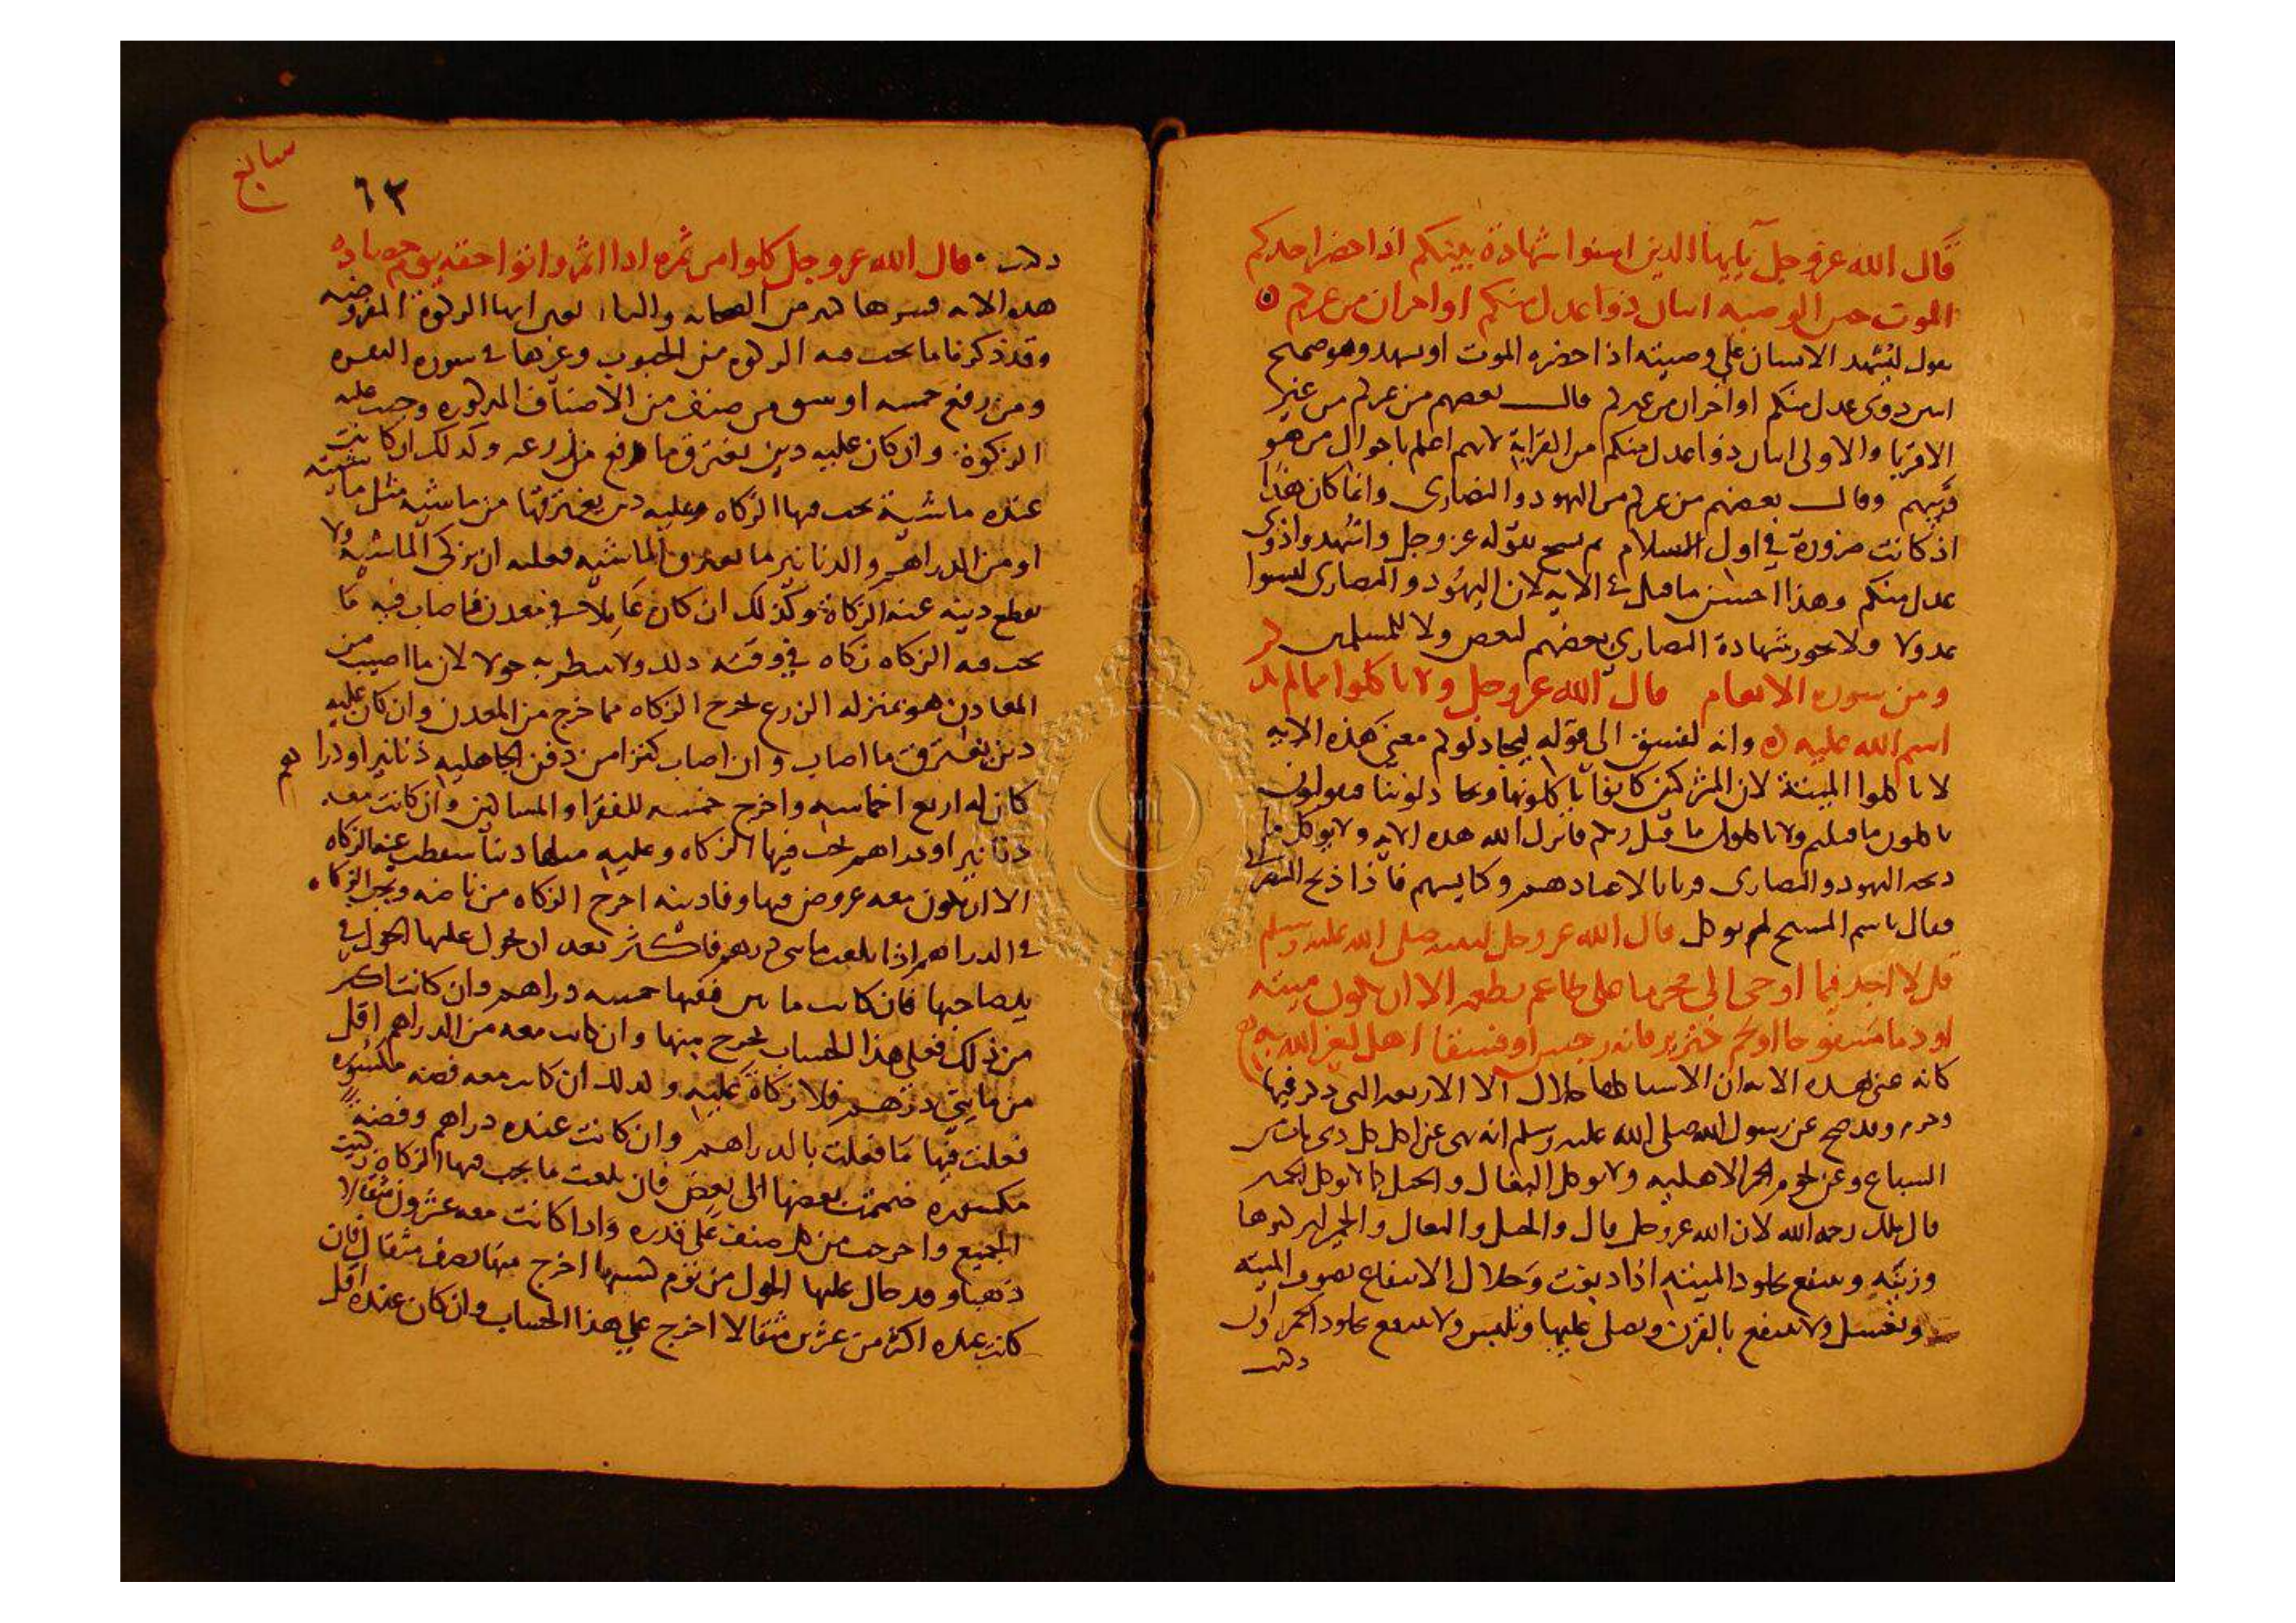 قال الله عز وجل يايها الذين امنوا شهادة بينكم اذا حضر احدكم
الموت حين الوصيه اثنان ذوا عدل منكم او اخران من غيركم
يقول ليشهد الانسان على وصيته اذا حضره الموت او يشهد وهو صحيح
اثنين ذوى عدل منكم او اخران من غيركم قال بعضهم من غيركم من غير
الاقربا والاولى اثنان ذوا عدل منكم من القرابة لانهم اعلم باحوال من هو
قريبهم وقال بعضهم من غيركم من اليهود والنصارى وانما كان هذا
اذ كانت ضرورة في اول الاسلام ثم نسخ بقوله عز وجل واشهدوا ذوى
عدل منكم وهذا احسن ما قيل في الايه لان اليهود والنصارى ليسوا
عدولا ولا يجوز شهادة النصارى بعضهم لبعض ولا للمسلمين
ومن سوره الانعام قال الله عز وجل ولا تاكلوا مما لم يذ
اسم الله عليه وانه لفسق الى قوله ليجادلوكم معنى هذه الايه
لا تاكلوا الميتة لان المشركين كانوا ياكلونها ويجادلوننا فيقولون
تاكلون ما قتلتم ولا تاكلون ما قتل ربكم فانزل الله هذه الايه ولا يوكل ما
ذبحه اليهود والنصارى قربانا لاعيادهم وكنايسهم فاذا ذبح النصراني
فقال باسم المسيح لم يوكل قال الله عز وجل لنبيه صلى الله عليه وسلم
قل لا اجد فيما اوحى الى محرما على طاعم يطعمه الا ان يكون ميته
او دما مسفوحا او لحم خنزير فانه رجس او فسقا اهل لغير الله به
كانه عنى بهذه الايه ان الاشيا كلها حلال الا الاربعه التى ذكر فيها
وقد صح عن رسول الله صلى الله عليه وسلم انه نهى عن اكل كل ذى ناب من
السباع وعن لحوم الحمر الاهليه ولا توكل البغال والخيل كما لا توكل الحمير
قال ملك رحمه الله لان الله عز وجل قال والخيل والبغال والحمير لتركبوها
وزينه وينتفع بجلود الميته اذا دبغت وحلال الانتفاع بصوف الميته
وتغسل ولا ينتفع بالقرن ويصلى عليها وتلبس ولا ينتفع بجلود الحمر وان
دبغت
سابع
٦٣
دبغت قال الله عز وجل كلوا من ثمره اذا اثمر واتوا حقه يوم حصاده
هذه الايه فسرها كثير من الصحابه والتابعين انها الزكوة المفروضه
وقد ذكرنا ما تجب فيه الزكوه من الحبوب وغيرها في سوره البقره
ومن رفع خمسه اوسق من صنف من الاصناف المذكوره وجب عليه
الزكوة وان كان عليه دين يغترق ما رفع من زرعه وكذلك ان كانت
عنده ماشية تجب فيها الزكاه وعليه دين يغترقها من ماشيه مثل ماشيته
او من الدراهم والدنانير ما يغترق الماشيه فعليه ان يزكى الماشيه ولا
يقطع دينه عنه الزكاة وكذلك ان كان عاملا في معدن فاصاب فيه ما
تجب فيه الزكاه زكاه في وقته ذلك ولا ينتظر به حولا لان ما اصيب من
المعادن هو بمنزله الزرع تخرج الزكاه مما خرج من المعدن وان كان عليه
دين يغترق ما اصاب وان اصاب كنزا من دفن الجاهليه دنانير او درا
هم
كان له اربع اخماسه واخرج خمسه للفقرا والمساكين وان كانت معه
دنانير او دراهم تجب فيها الزكاه وعليه مثلها دينا سقطت عنه الزكاه
الا ان يكون معه عروض فيها وفا دينه اخرج الزكاه من ناضه وتجب الزكاه
في الدراهم اذا بلغت مائتى درهم فاكثر بعد ان يحول عليها الحول في
يد صاحبها فان كانت مائتين ففيها خمسه دراهم وان كانت اكثر
من ذلك فعلى هذا الحساب يخرج منها وان كانت معه من الدراهم اقل
من مايتى درهم فلا زكاة عليه وكذلك ان كانت معه فضه مكسوره
فعلت فيها ما فعلت بالدراهم وان كانت عنده دراهم وفضة
مكسوره ضممت بعضها الى بعض فان بلغت ما يجب فيها الزكاه زكيت
الجميع واخرجت من كل صنف على قدره واذا كانت معه عشرون مثقالا
ذهبا وقد حال عليها الحول من يوم كسبها اخرج منها نصف مثقال فان
كانت عنده اكثر من عشرين مثقالا اخرج على هذا الحساب وان كان عنده اقل